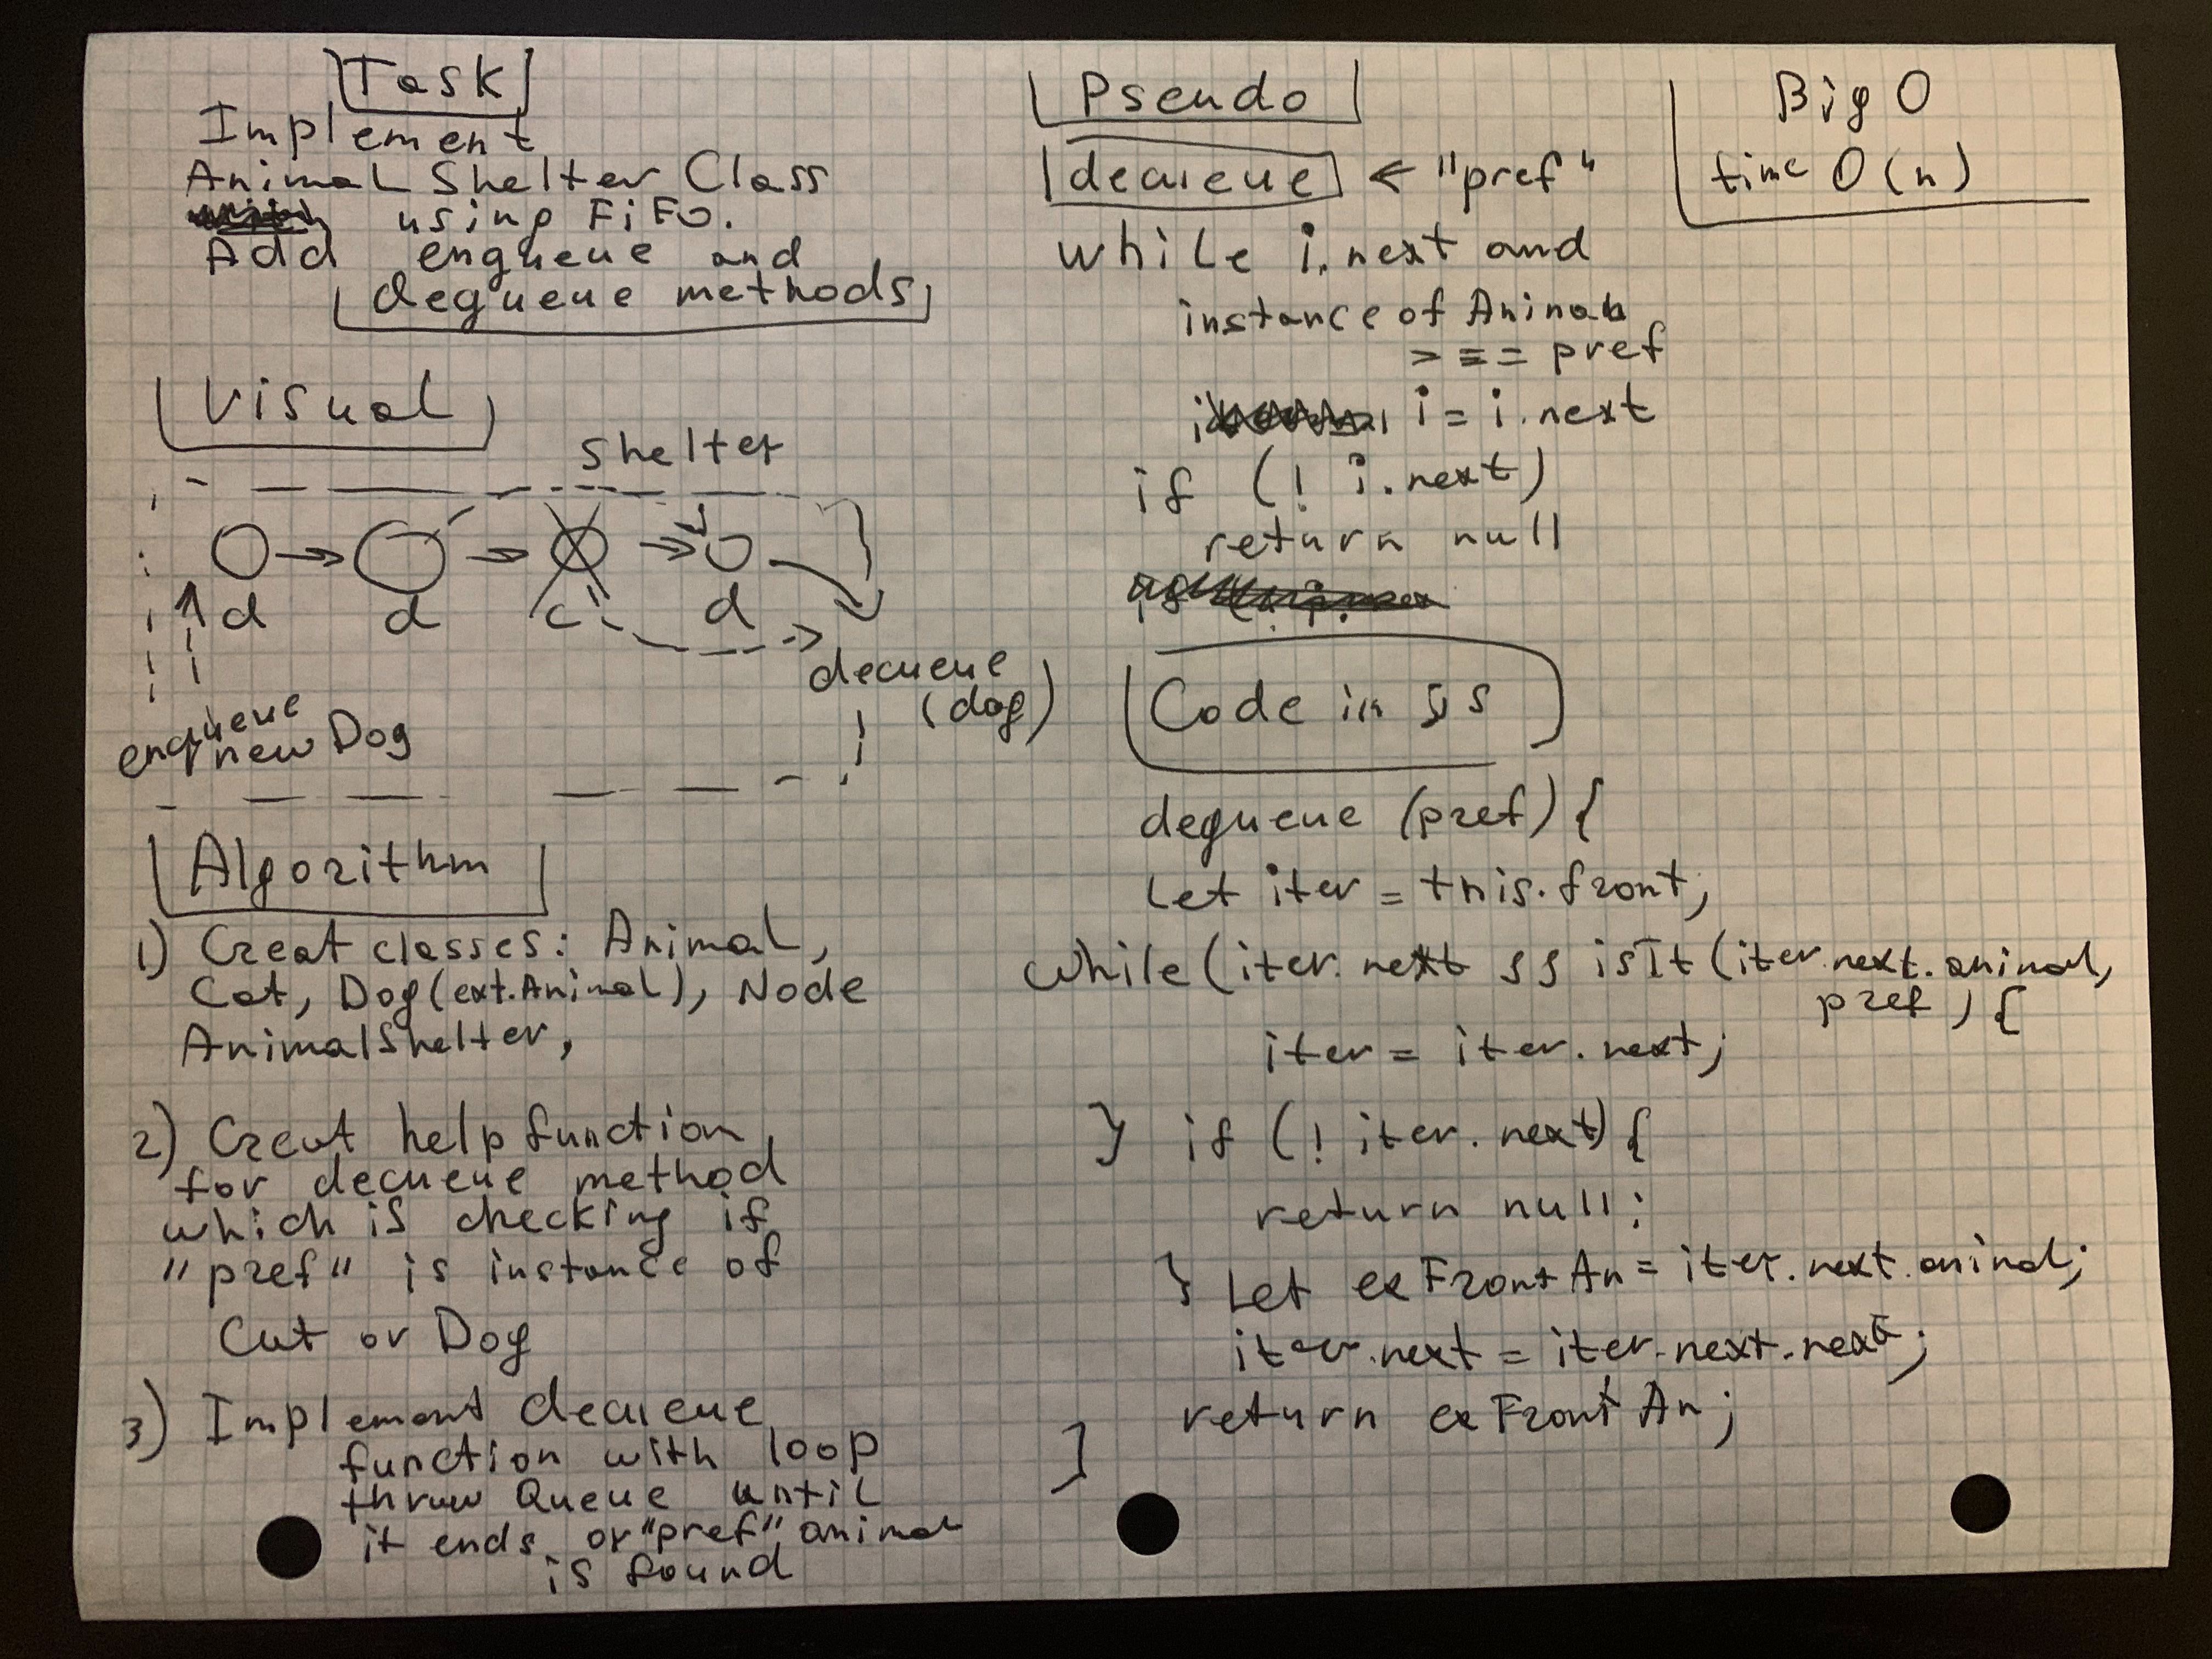 Task
Implement
Animal Shelter Class
using FiFO.
Add enqueue and
dequeue methods
Visual
shelter
d d c d
decueue
(dog)
enqueue
new Dog
Algorithm
1) Creat classes: Animal,
Cat, Dog(ext.Animal), Node
AnimalShelter,
2) Creat help function
for decueue method
which is checking if
"pref" is instance of
Cat or Dog
3) Implement decueue
function with loop
thruw Queue until
it ends or "pref" animal
is found
Pseudo
decueue ← "pref"
while i.next and
instance of Animal
> == pref
i = i.next
if (! i.next)
return null
Code in JS
dequeue (pref) {
let iter = this.front;
while (iter.next && isIt (iter.next.animal,
pref) {
iter = iter.next;
} if (! iter.next) {
return null;
} let exFrontAn = iter.next.animal;
iter.next = iter.next.next;
return exFrontAn;
}
Big O
time O(n)